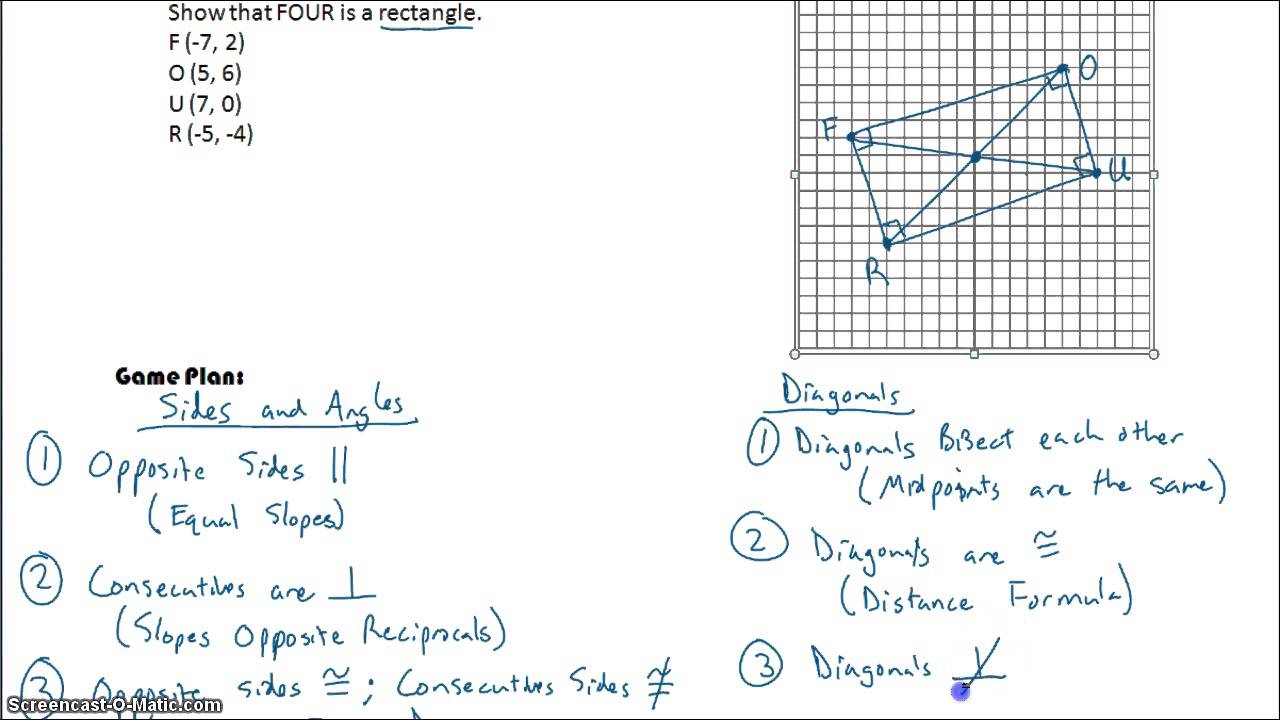 Show that FOUR is a rectangle.
F (-7, 2)
O (5, 6)
U (7, 0)
R (-5, -4)
O
F
U
R
Game Plan:
Sides and Angles
① Opposite Sides ||
(Equal Slopes)
② Consecutives are ⊥
(Slopes Opposite Reciprocals)
③ Opposite sides ≅; Consecutives Sides ≇
Diagonals
① Diagonals Bisect each other
(Midpoints are the same)
② Diagonals are ≅
(Distance Formula)
③ Diagonals ⊥̸
Screencast-O-Matic.com